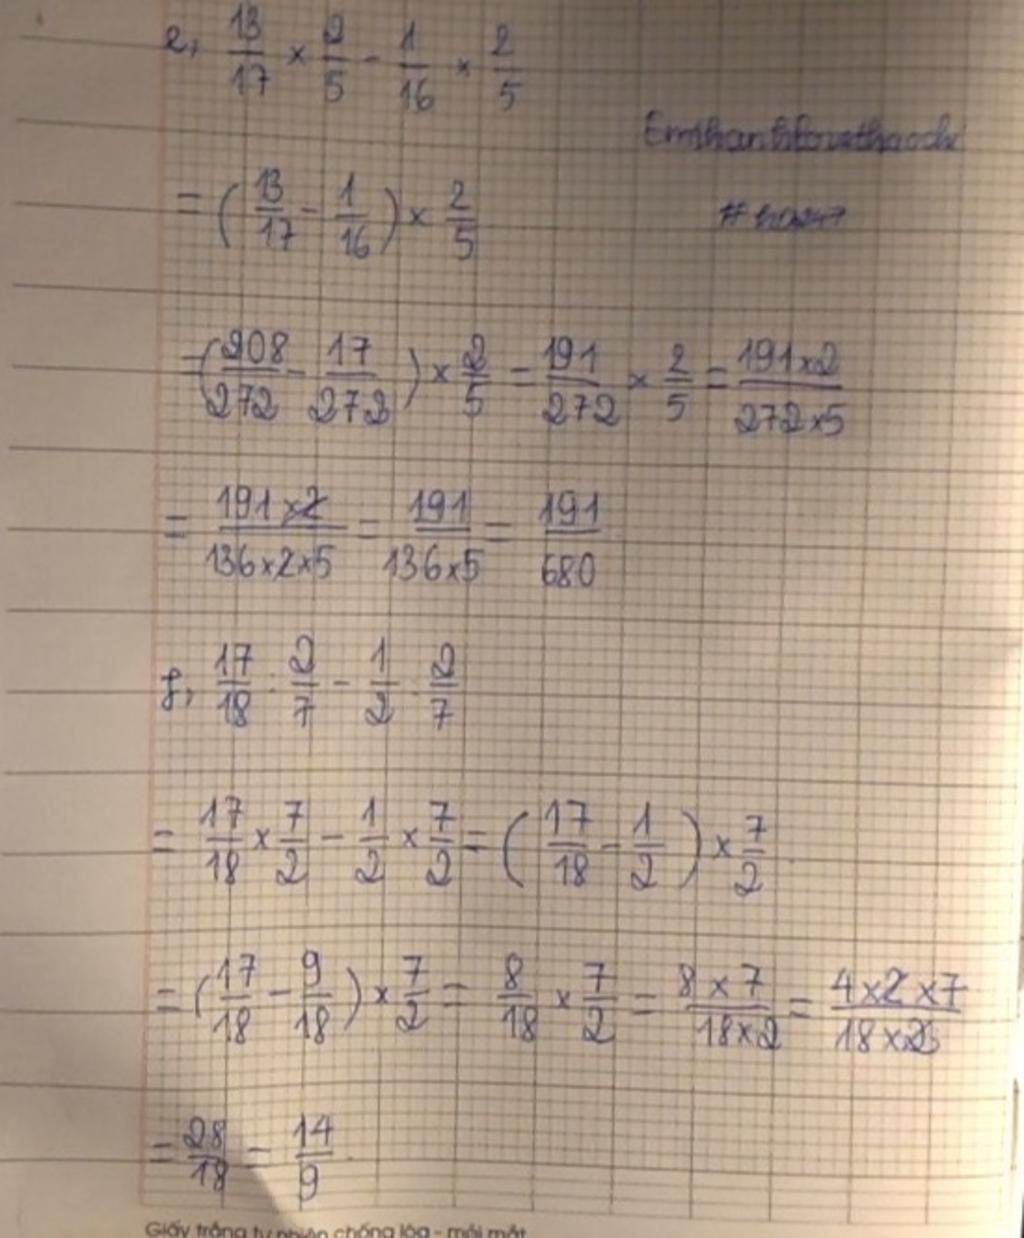 e, 13/17 × 2/5 - 1/16 × 2/5
= (13/17 - 1/16) × 2/5
=(208/272 - 17/272) × 2/5 = 191/272 × 2/5 = 191×2/272×5
= 191×2/136×2×5 = 191/136×5 = 191/680
f, 17/18 : 2/7 - 1/2 : 2/7
= 17/18 × 7/2 - 1/2 × 7/2 = (17/18 - 1/2) × 7/2
= (17/18 - 9/18) × 7/2 = 8/18 × 7/2 = 8×7/18×2 = 4×2×7/18×2
= 28/18 = 14/9
Giấy trắng tự nhiên chống lóa - mỏi mắt